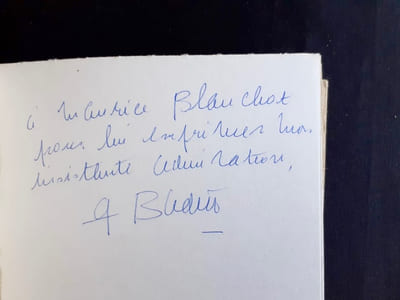 à Maurice Blanchot
pour lui exprimer mon
insistante admiration,
A Badiou